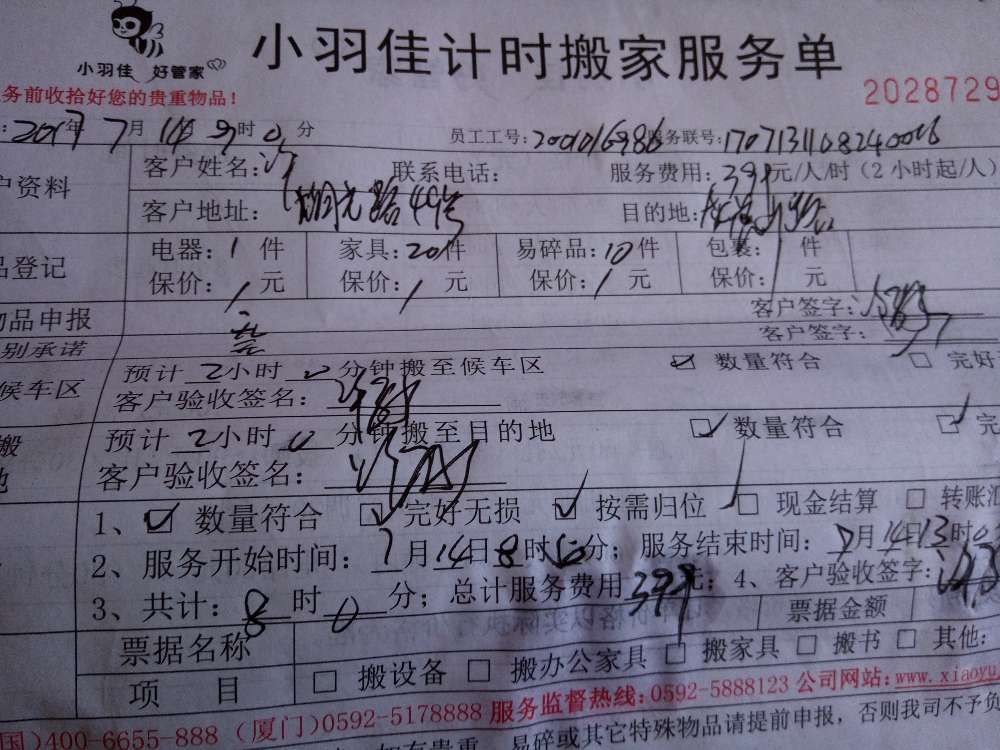 小羽佳 好管家
小羽佳计时搬家服务单
务前收拾好您的贵重物品!
2028729
: 2017年 7月 14 9时 0 分 员工工号: 务联号:
户资料 客户姓名: 联系电话: 服务费用: 399元/人/时(2小时起/人)
客户地址: 湖光路49号 目的地:
品登记 电器: 1 件 家具: 20件 易碎品: 10件 包裹: 件
保价: / 元 保价: / 元 保价: / 元 保价: 元
物品申报 客户签字:
别承诺 客户签字:
候车区 预计 2小时 0 分钟搬至候车区 ☑ 数量符合 □ 完好
客户验收签名:
搬 预计 2小时 0 分钟搬至目的地 ☑ 数量符合 ☑ 完
地 客户验收签名:
1、☑ 数量符合 ☑ 完好无损 ☑ 按需归位 □ 现金结算 □ 转账汇
2、服务开始时间: 7月14日8时50分; 服务结束时间: 7月14日13时0
3、共计: 8 时 0 分; 总计服务费用399元; 4、客户验收签字:
票据名称 票据金额
项 目 □ 搬设备 □ 搬办公家具 □ 搬家具 □ 搬书 □ 其他:
国)400-6655-888 (厦门)0592-5178888 服务监督热线:0592-5888123 公司网站:www.xiaoyu
如有贵重、易碎或其它特殊物品请提前申报,否则我司不予负